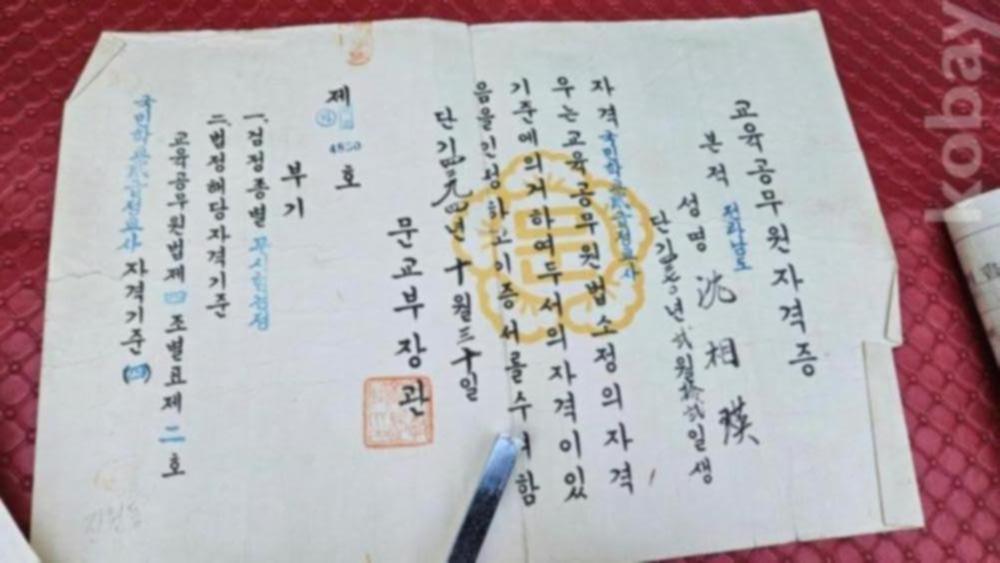 교육공무원자격증
본적 전라남도
성명 沈相
단기 년 貳월拾貳일생
자격 국민학교 급정교사
우는 교육공무원법소정의 자격
기준에 의거하여 두서의 자격이 있
음을 인정하고 이 증서를 수여함
단기四二九四년十월三十일
문교부장관
제 4850 호
부기
一. 검정종별 무시험검정
二. 법정해당자격기준
교육공무원법 제四조 별표 제二호
국민학교 급정교사 자격기준(四)
kobay